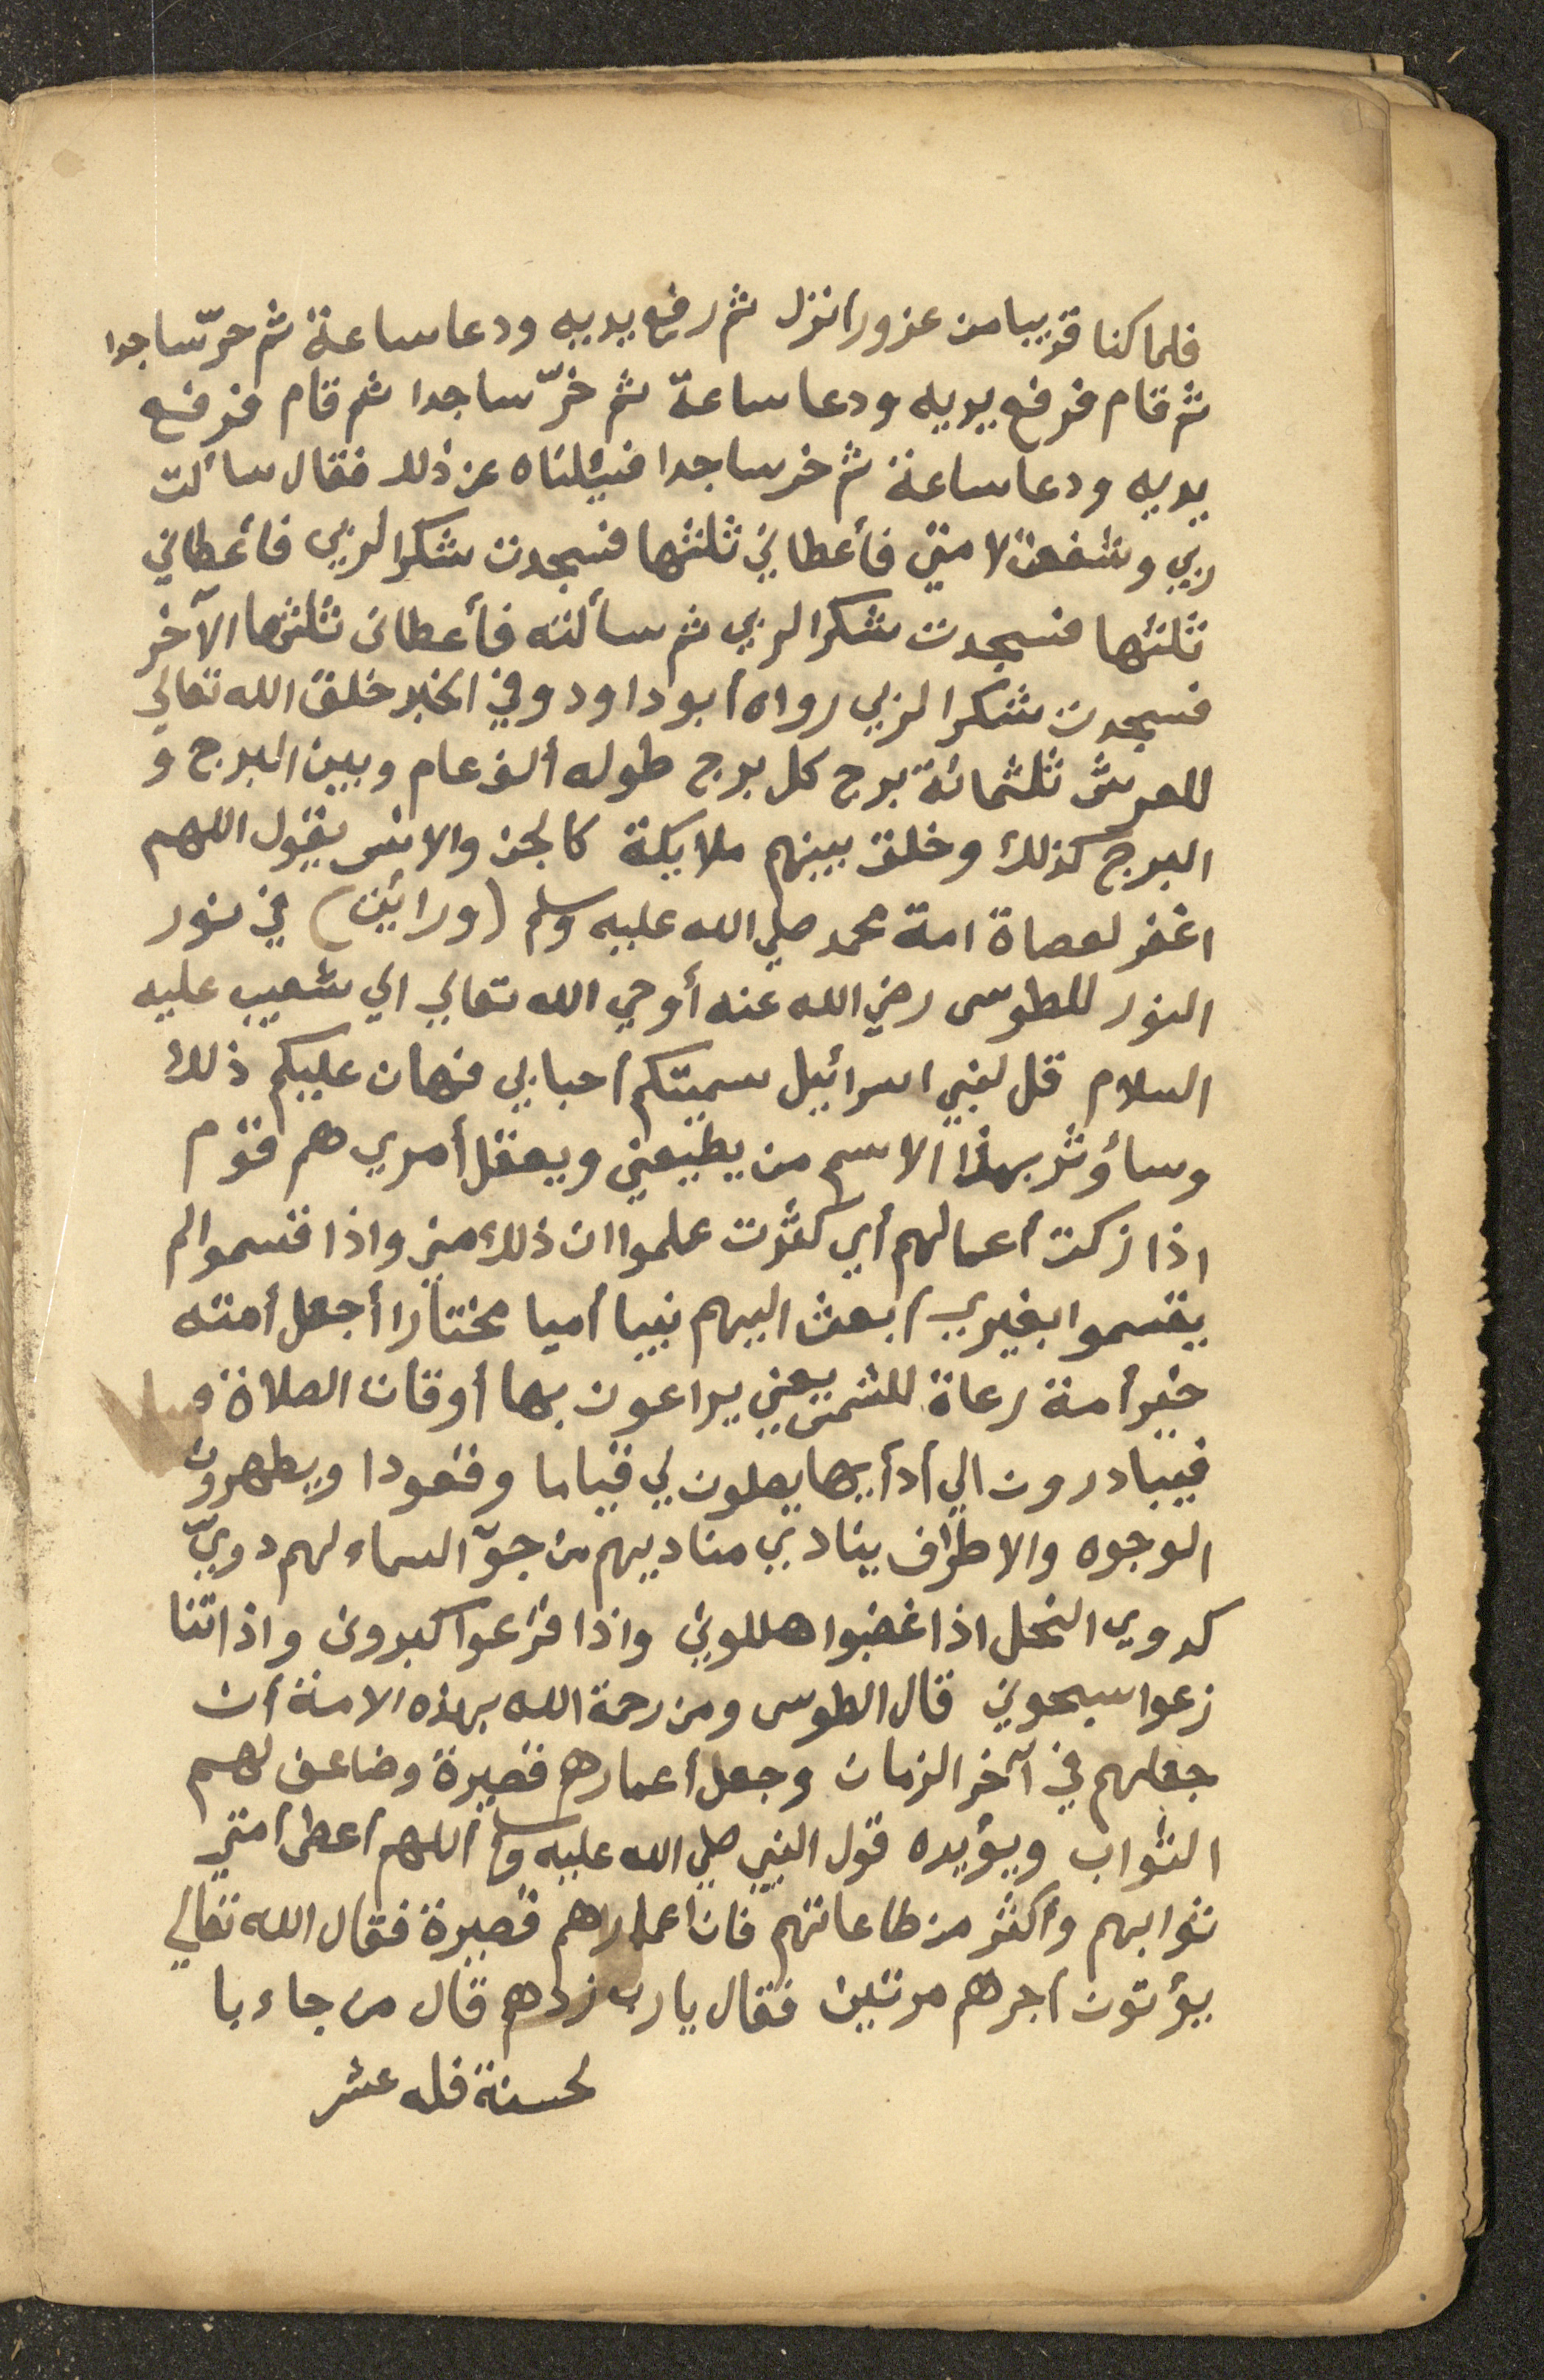 فلما كنا قريبا من عزورا نزل ثم رفع يديه ودعا ساعة ثم خرّ ساجدا
ثم قام فرفع يديه ودعا ساعة ثم خرّ ساجدا ثم قام فرفع
يديه ودعا ساعة ثم خر ساجدا فسئلناه عن ذلك فقال سألت
ربي وشفعت لامتي فأعطاني ثلثها فسجدت شكرا لربي فأعطاني
ثلثها فسجدت شكرا لربي ثم سألته فأعطانى ثلثها الآخر
فسجدت شكرا لربي رواه أبو داود وفي الخبر خلق الله تعالى
للعرش ثلثمائة برج كل برج طوله ألف عام وبين البرج و
البرج كذلك وخلق بينهم ملايكة كالجن والانس يقول اللهم
اغفر لعصاة امة محمد صلي الله عليه وسلم (ورائيت) في نور
النور للطوسى رضي الله عنه أوحي الله تعالي الي شعيب عليه
السلام قل لبني اسرائيل سميتكم أحبابي فهان عليكم ذلك
وسأوثر بهذا الاسم من يطيعني ويعقل أمري هم قوم
اذا زكت أعمالهم أي كثرت علموا ان ذلك مني واذا قسموا لم
يقسموا بغيري أبعث اليهم نبيا أميا مختارا أجعل أمته
خير أمة رعاة للشمس يعني يراعون بها أوقات الصلاة و
فيبادرون الي أدأيها يصلون لي قياما وقعودا ويطهرون
الوجوه والاطراف ينادي مناديهم من جوّ السماء لهم دويّ
كدوي النحل اذا غضبوا هللوني واذا فزعوا كبرونى واذا تنا
زعوا سبحوني قال الطوسى ومن رحمة الله بهذه الامة أن
جعلهم في آخر الزمان وجعل أعمارهم قصيرة وضاعف لهم
الثواب ويؤيده قول النبي صلي الله عليه وسلم أللهم أعطى أمتي
ثوابهم وأكثر من طاعاتهم فان أعمارهم قصيرة فقال الله تعالي
يؤتون أجرهم مرتين فقال يارب زدهم قال من جاء با
لحسنة فله عشر